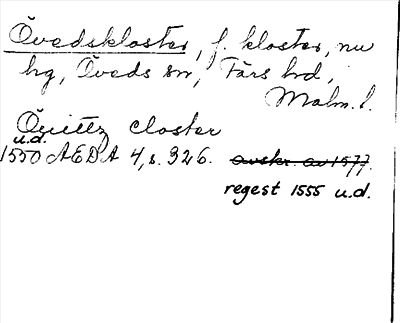 Övedskloster, f. kloster, nu
hg, Öveds sn, Färs hd,
Malm. l.
Öuittz closter
u.d.
1550 AEDA 4, s. 326. avskr. av 1577.
regest 1555 u.d.